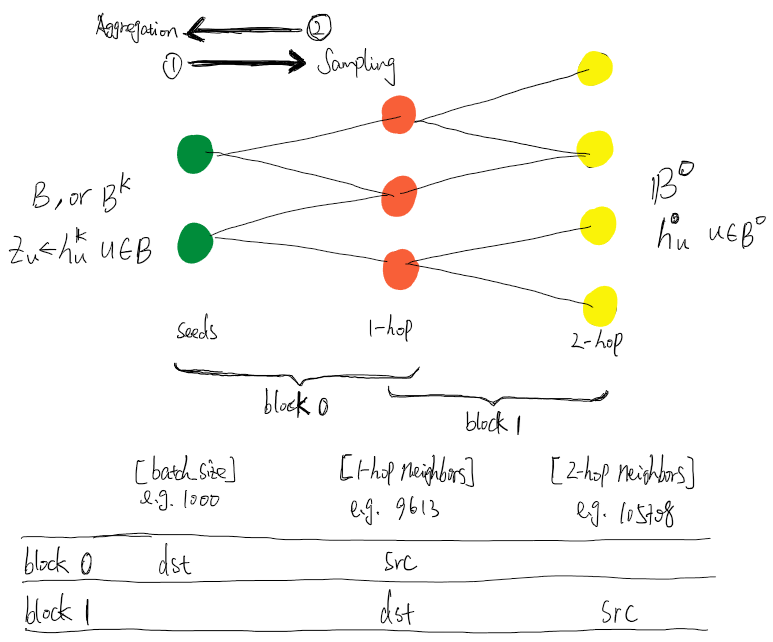 Aggregation ②
① Sampling
B, or B^k
Z_u ← h_u^k u∈B
B^0
h_u^0 u∈B^0
seeds 1-hop 2-hop
block 0 block 1
[batch_size] [1-hop neighbors] [2-hop neighbors]
e.g. 1000 e.g. 9613 e.g. 105708
block 0 dst src
block 1 dst src